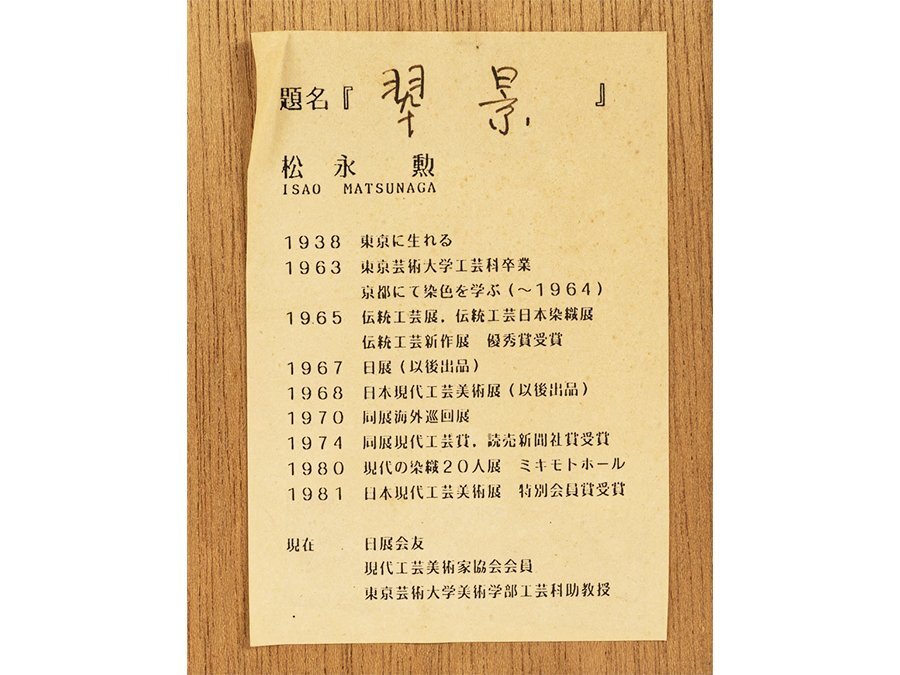 題名『 翠景 』
松永 勲
ISAO MATSUNAGA
1938 東京に生れる
1963 東京芸術大学工芸科卒業
京都にて染色を学ぶ(〜1964)
1965 伝統工芸展,伝統工芸日本染織展
伝統工芸新作展 優秀賞受賞
1967 日展(以後出品)
1968 日本現代工芸美術展(以後出品)
1970 同展海外巡回展
1974 同展現代工芸賞,読売新聞社賞受賞
1980 現代の染織20人展 ミキモトホール
1981 日本現代工芸美術展 特別会員賞受賞
現在 日展会友
現代工芸美術家協会会員
東京芸術大学美術学部工芸科助教授